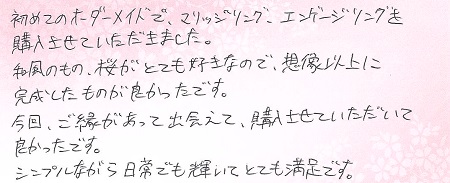 初めてのオーダーメイドで、マリッジリング、エンゲージリングを
購入させていただきました。
和風のもの、桜がとても好きなので、想像以上に
完成したものが良かったです。
今回、ご縁があって出会えて、購入させていただいて
良かったです。
シンプルながら日常でも輝いてとても満足です。